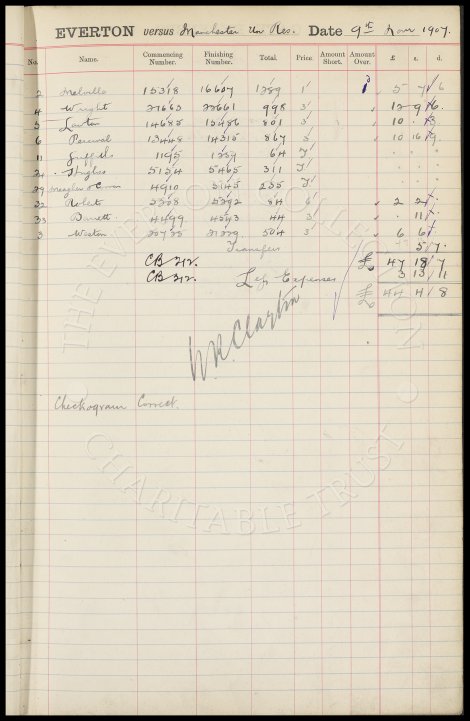 EVERTON versus Manchester Un Res. Date 9th Nov 1907.
No. Name. Commencing Number. Finishing Number. Total. Price Amount Short. Amount Over. £ s. d.
2 Melville 15318 16607 1289 1'
4 Wright 21663 22661 998 3' 12 9 6
5 Lawton 14685 15486 801 3' 10
6 Percival 13448 14315 867 3' 10 16 9
11 1195 1259 64 F'
24 Hughes 5154 5465 311 F'
29 4910 5145 235 F'
32 Roberts 5308 5392 84 6' 2 2
33 Barnett 4499 4543 44 3' 11
3 Weston 504 3' 6 6
Transfers 5 7
CB 212. £ 47 18 7
CB 212. Less Expenses 3 13 11
£ 44 4 8
W.R. Clayton
Checkogram Correct.
THE EVERTON COLLECTION
CHARITABLE TRUST